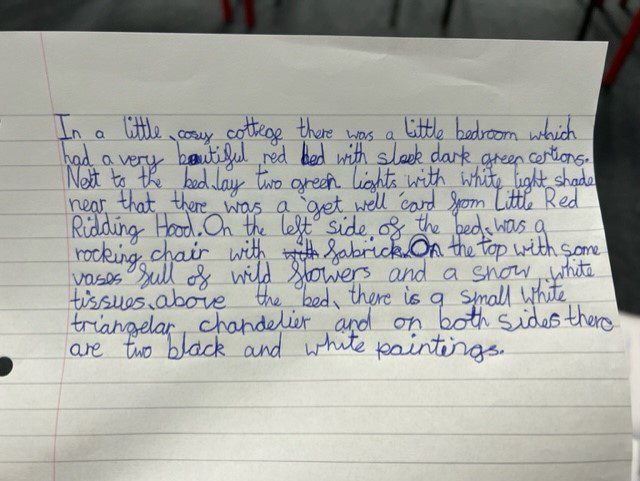 In a little, cosy cottege there was a little bedroom which
had a very beutiful red bed with sleek dark green certions.
Next to the bed, lay two green lights with white light shade
near that there was a 'get well' card from Little Red
Ridding Hood. On the left side of the bed, was a
rocking chair with fabrick. On the top with some
vases full of wild flowers and a snow white
tissues, above the bed, there is a small white
triangelar chandelier and on both sides there
are two black and white paintings.